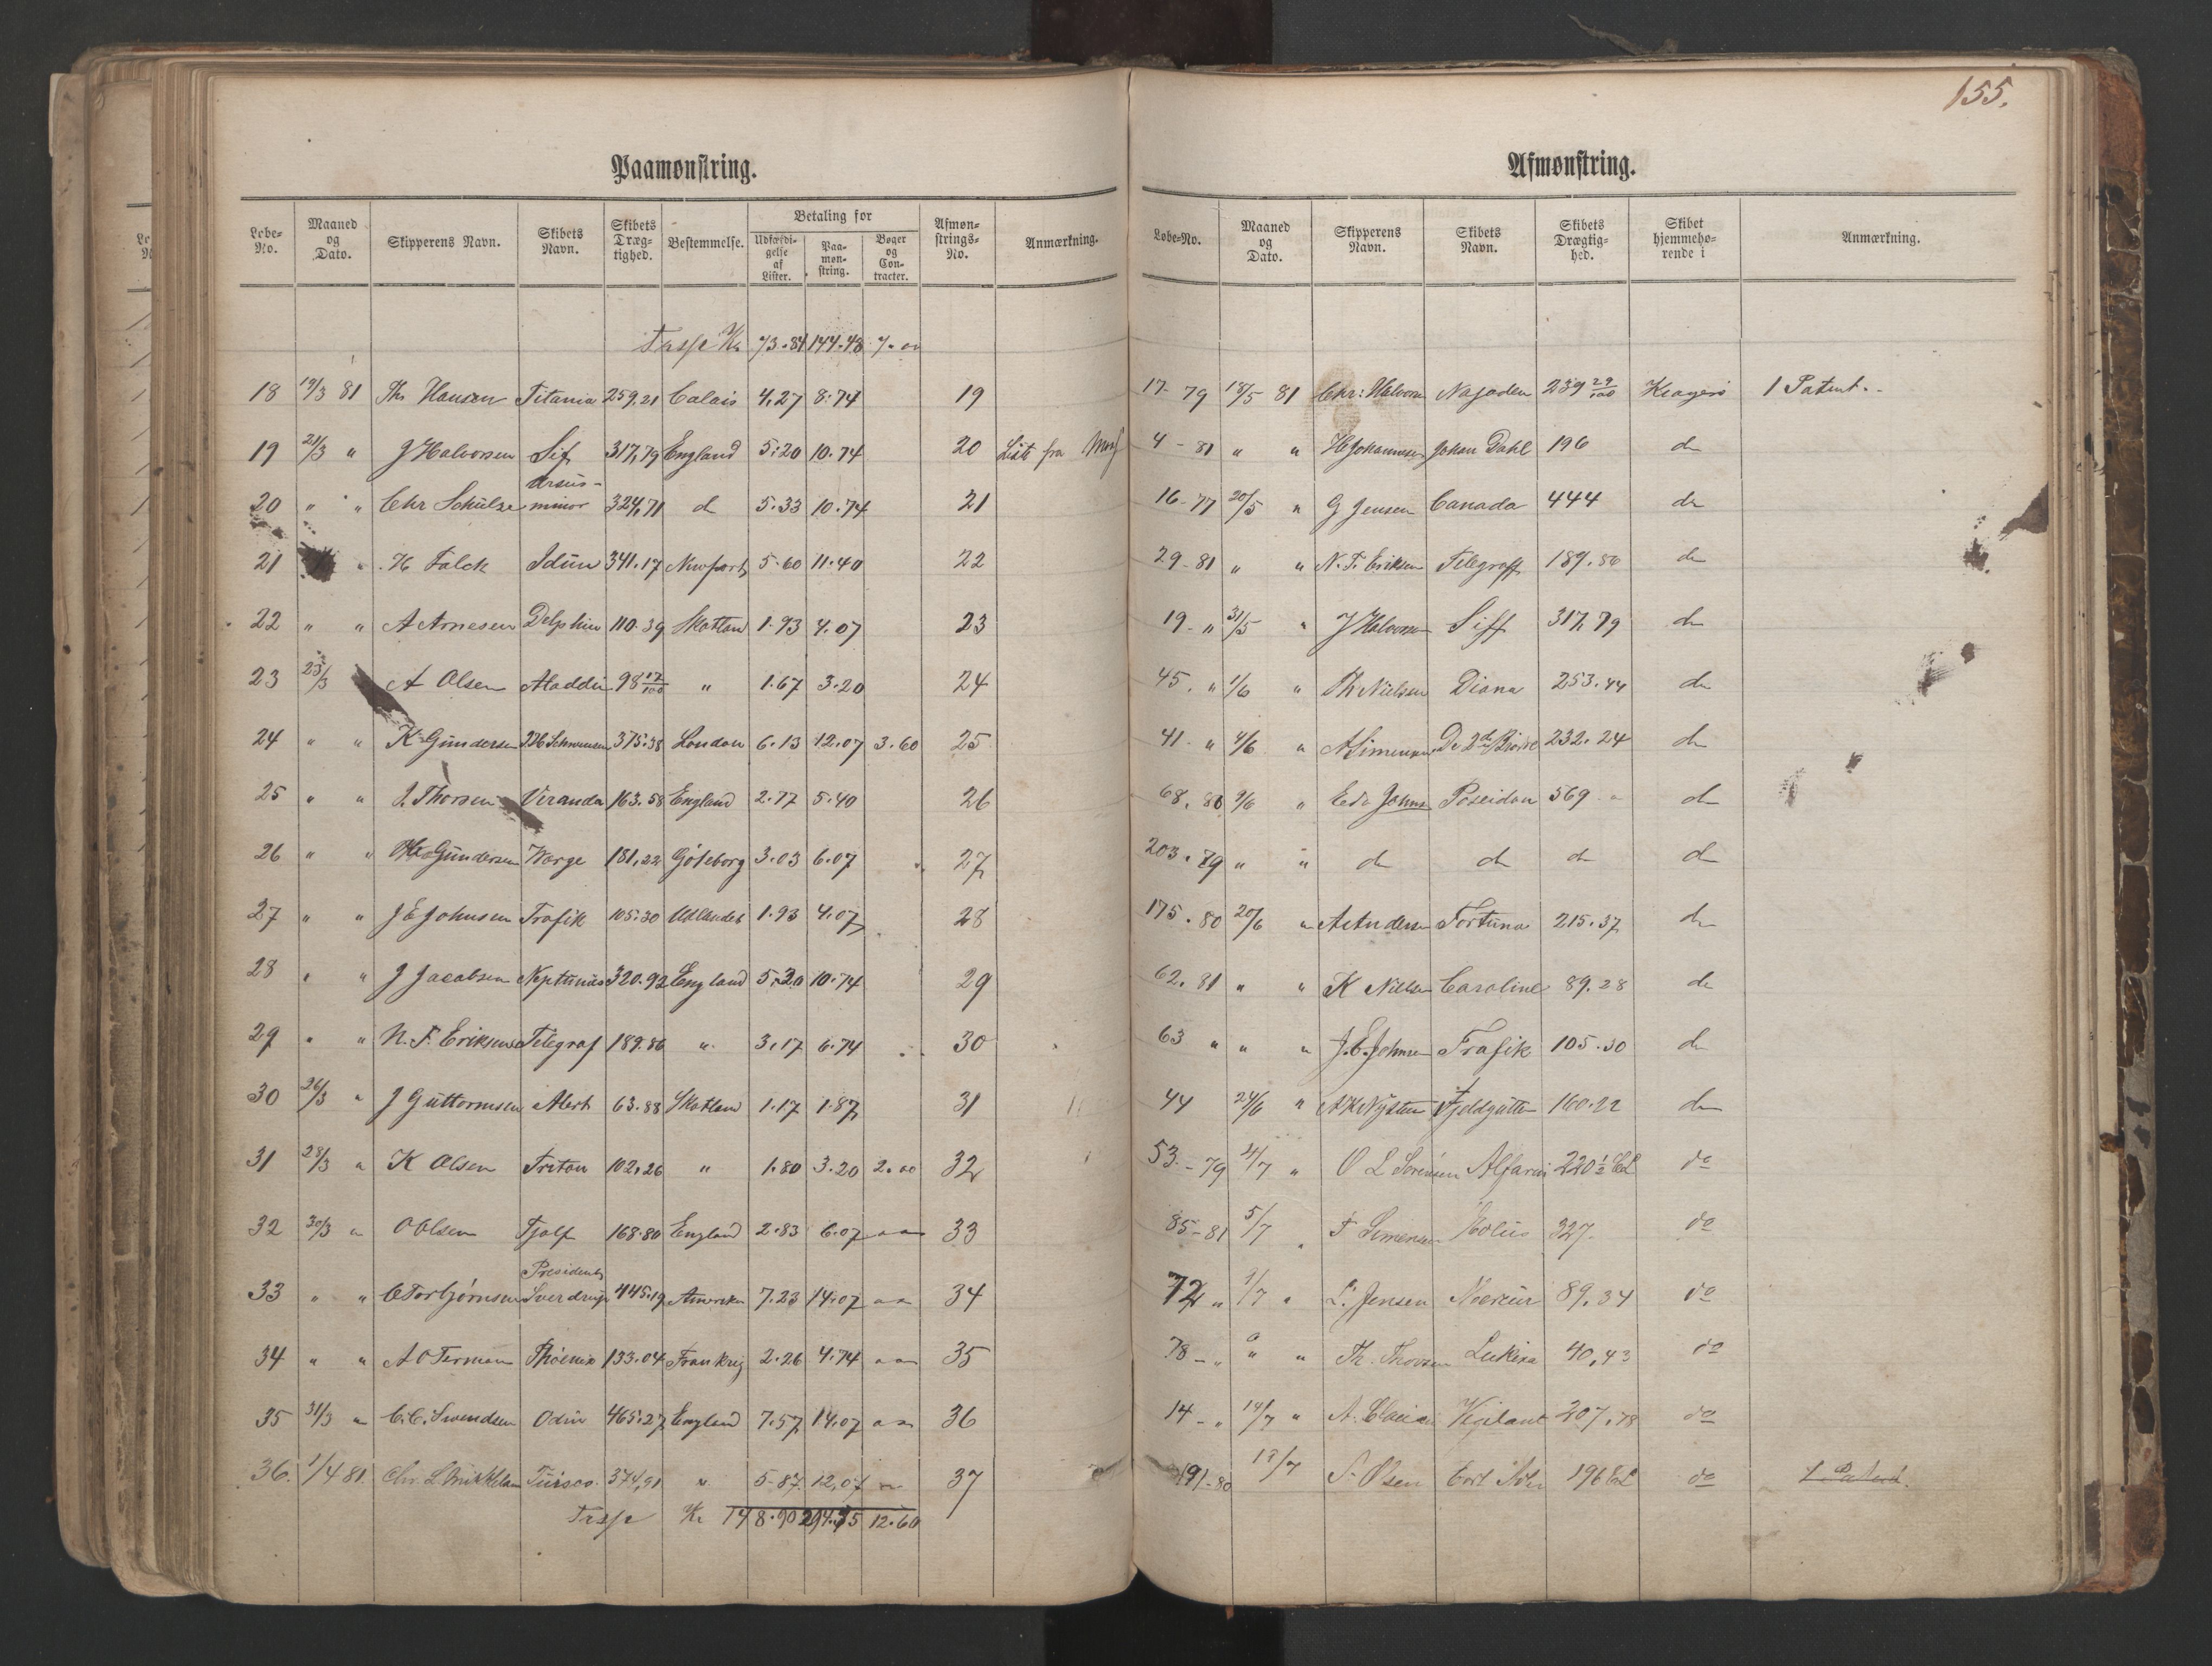 155.
Paamønstring.
Løbe-No. Maaned og Dato. Skipperens Navn. Skibets Navn. Skibets Dræg-tighed. Bestemmelse. Betaling for Udfærdi-gelse af Lister. Paa-møn-string. Bøger og Con-tracter. Afmøn-strings-No. Anmærkning.
Kr 73.84 144.48 7.00
18 19/3 81 Th Hansen Titania 259,21 Calais 4,27 8.74 19
19 21/3 " J Halvorsen Sif 317,79 England 5.20 10.74 20 Liste fra
20 " " Chr Schulze Ursus-minor 324,71 d 5.33 10.74 21
21 " H Falck Idun 341.17 Newport 5.60 11.40 22
22 " " A Arnesen Delphin 110.39 Skotland 1.93 4.07 23
23 23/3 A Olsen Aladdin 98 17/100 " 1.67 3.20 24
24 " " K Gundersen 375.38 London 6.13 12.07 3.60 25
25 " " J. Thorsen Veranda 163.58 England 2.77 5.40 26
26 " " Gundersen Norge 181.22 Göteborg 3.03 6.07 27
27 " " J E Johnsen Trafik 105.30 Udlandet 1.93 4.07 28
28 " " J Jacobsen Neptunus 320.92 England 5.20 10.74 29
29 " " N. F. Eriksen Telegraf 189.86 " 3.17 6.74 30
30 26/3 " J Guttormsen Alert 63.88 Skotland 1.17 1.87 31
31 28/3 " K Olsen Triton 102.26 " 1.80 3.20 2.00 32
32 30/3 " O Olsen Fjalf 168.80 England 2.83 6.07 " " 33
33 " " C Torbjörnsen President Sverdrup 445.19 Amerika 7.23 14.07 " " 34
34 " " A O Terman Phoenix 133.04 Frankrig 2.26 4.74 " " 35
35 31/3 " C. C. Svendsen Odin 465.27 England 7.57 14.07 " " 36
36. 1/4 81. Chr. L. 374,91 " 5.87 12,07 " 37
Kr 148.90 294.35 12.60
Afmønstring.
Løbe-No. Maaned og Dato. Skipperens Navn. Skibets Navn. Skibets Drægtig-hed. Skibet hjemmehø-rende i Anmærkning.
17- 79 18/5 81 Chr: Halvorsen Najaden 239 29/100 Kragerö 1 Patent.
4 - 81 " " H Johannesen Johan Dahl 196 do
16-77 20/5 " G Jensen Canada 444 do
29-81 " " N. F. Eriksen Telegraff 189.86 do
19 - " 31/5 " J Halvorsen Siff 317.79 do
45. " 1/6 " Th Nielsen Diana 253.44 do
41 - " 4/6 " A Simensen De 2de Brödre 232.24 do
68. 80 9/6 " Edv Johns Poseidon 569 do
203. 79 " " do do do do
175. 80 20/6 " A Andersen Fortuna 215.37 do
62. 81 " " K Nielsen Caroline 89.28 do
63 " " " J. E. Johnsen Trafik 105.30 do
44 24/6 " Fjeldgutten 160.22 do
53.- 79 4/7 " O L Sorensen 220 1/2 CL do
85-81 5/7 " F Simensen Æolus 327. do
72 " 9/7 " L. Jensen Mercur 89.34 do
78 - " " " Th. Thorsen 40,43 do
14 - " 14/7 " A. Vigilant 207,78 do
191-80 18/7 S. Olsen 196 CL do 1 Patent.